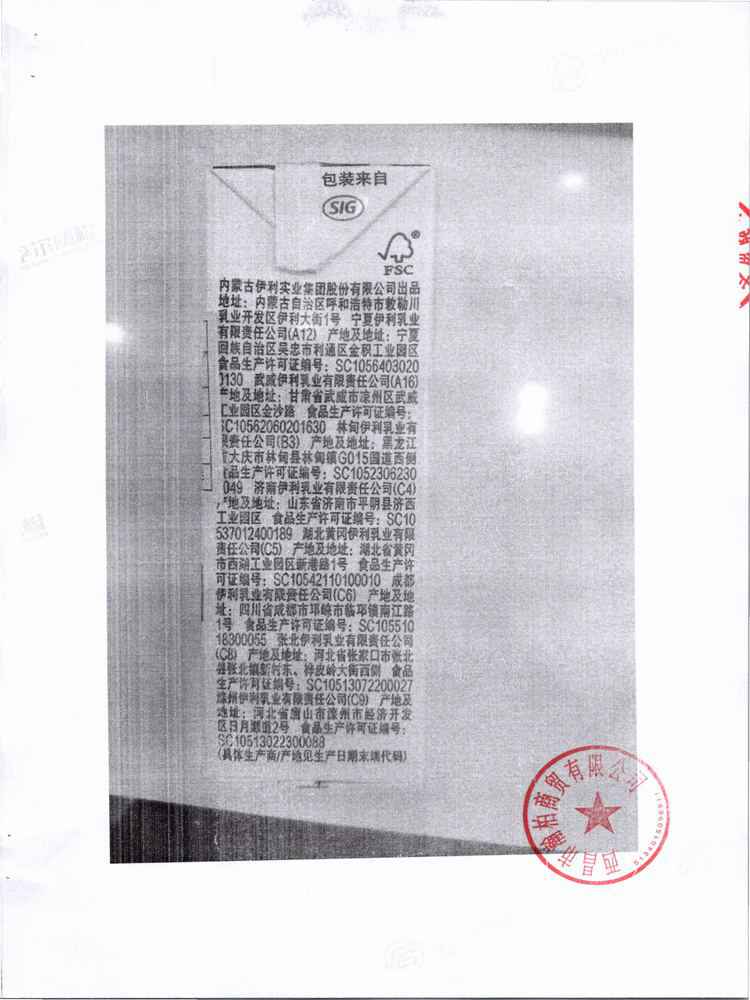 包装来自
SIG
®
FSC
内蒙古伊利实业集团股份有限公司出品
地址：内蒙古自治区呼和浩特市敕勒川
乳业开发区伊利大街1号 宁夏伊利乳业
有限责任公司(A12) 产地及地址：宁夏
回族自治区吴忠市利通区金积工业园区
食品生产许可证编号：SC1056403020
1130 武威伊利乳业有限责任公司(A16)
产地及地址：甘肃省武威市凉州区武威
工业园区金沙路 食品生产许可证编号：
SC10562060201630 林甸伊利乳业有
限责任公司(B3) 产地及地址：黑龙江
省大庆市林甸县林甸镇G015国道西侧
食品生产许可证编号：SC1052306230
0049 济南伊利乳业有限责任公司(C4)
产地及地址：山东省济南市平阴县济西
工业园区 食品生产许可证编号：SC10
537012400189 湖北黄冈伊利乳业有限
责任公司(C5) 产地及地址：湖北省黄冈
市西湖工业园区新港路1号 食品生产许
可证编号：SC10542110100010 成都
伊利乳业有限责任公司(C6) 产地及地
址：四川省成都市邛崃市临邛镇南江路
1号 食品生产许可证编号：SC105510
18300055 张北伊利乳业有限责任公司
(C8) 产地及地址：河北省张家口市张北
县张北镇新河东、桦皮岭大街西侧 食品
生产许可证编号：SC10513072200027
滦州伊利乳业有限责任公司(C9) 产地及
地址：河北省唐山市滦州市经济开发
区日月潭道2号 食品生产许可证编号：
SC10513022300088
(具体生产商/产地见生产日期末端代码)
西昌市 柏商贸有限公司